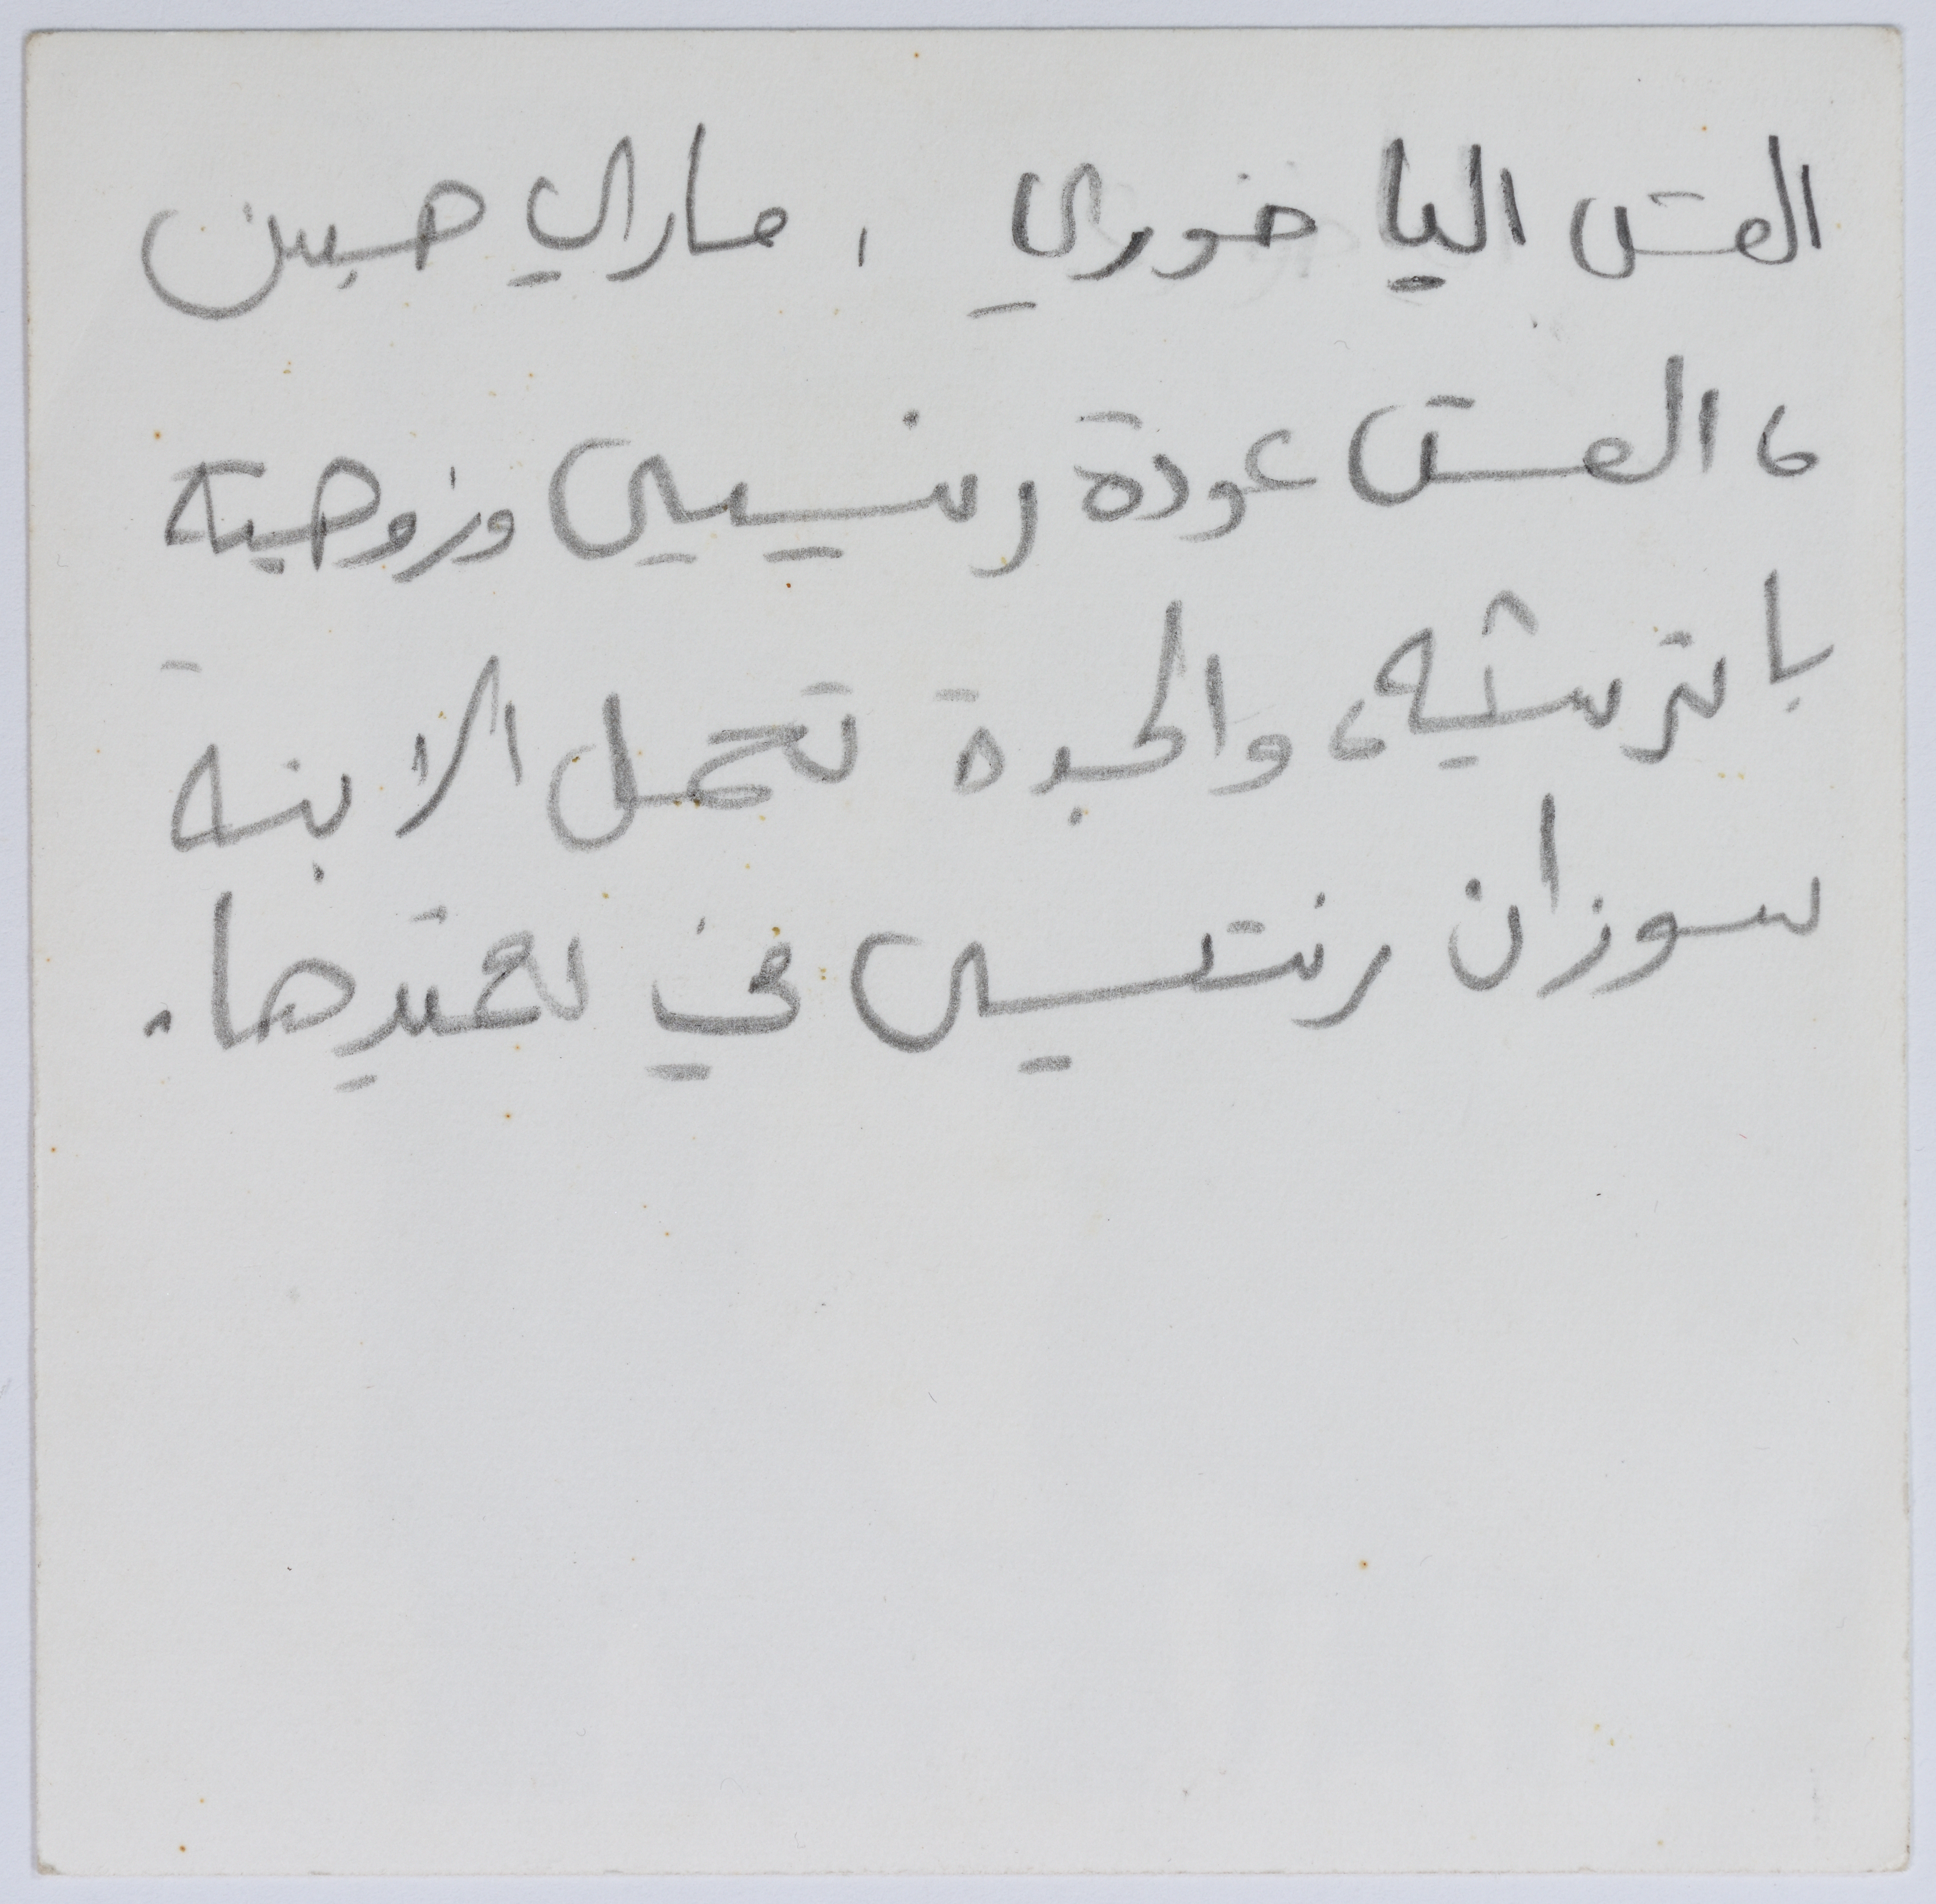 القس اليا خوري ، ماري حبش
، القس عودة رنتيسي وزوجته
باترشيه، والجدة تحمل الابنة
سوزان رنتيسي في تعميدها.